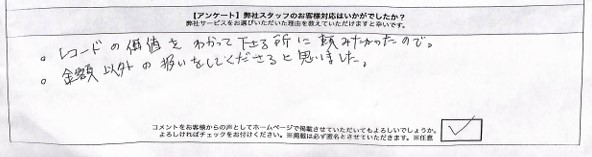 【アンケート】弊社スタッフのお客様対応はいかがでしたか?
弊社サービスをお選びいただいた理由を教えていただけますと幸いです。
。レコードの価値をわかって下さる所に頼みたかったので。
。金額以外の扱いをしてくださると思いました。
コメントをお客様からの声としてホームページで掲載させていただいてもよろしいでしょうか。
よろしければチェックをお付けください。※掲載は必ず匿名とさせていただきます。※任意